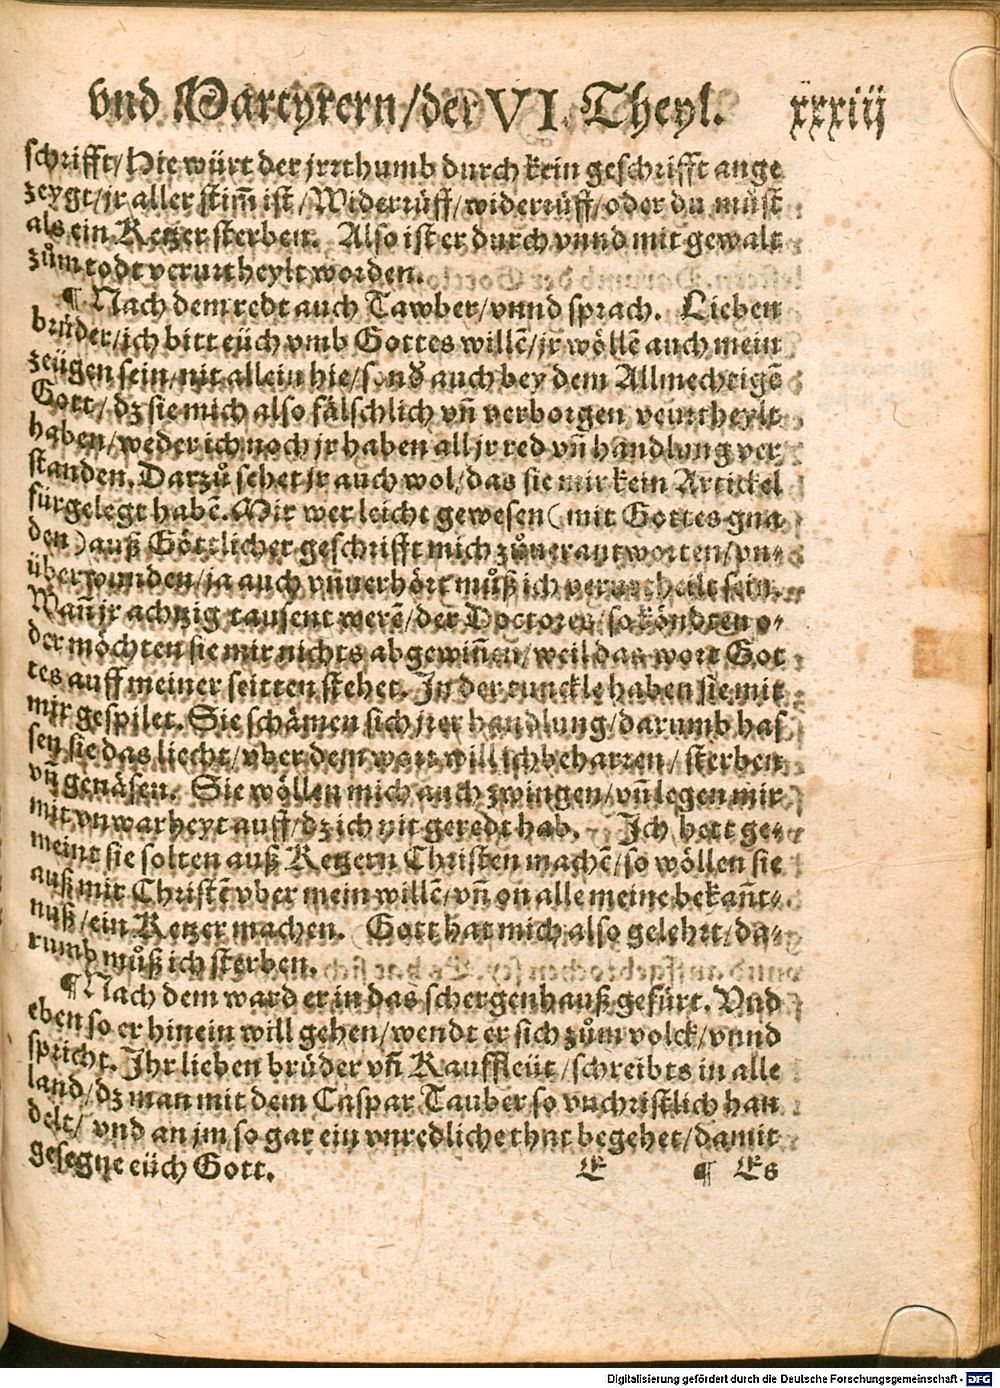 vnd Martyrern/der VI. Theyl. xxxiij
schrifft/Hie würt der jrrthumb durch kein geschrifft ange
zeygt/jr aller stim̃ ist/Widerrüff/widerrüff/oder du můst
als ein Ketzer sterben. Also ist er durch vnnd mit gewalt
zům todt verurtheylt worden.
¶ Nach dem redt auch Tawber/vnnd sprach. Lieben
brüder/ich bitt eüch vmb Gottes willẽ/jr wöllẽ auch mein
zeügen sein/nit allein hie/sond̃ auch bey dem Allmechtigẽ
Gott/dz sie mich also fälschlich vñ verborgen verurtheylt
haben/weder ich noch jr haben all jr red vñ handlung ver
standen. Darzů sehet jr auch wol/das sie mir kein Artickel
fürgelegt habẽ. Mir wer leicht gewesen (mit Gottes gna
den) auß Göttlicher geschrifft mich zůuerantworten/vn-
überwunden/ja auch vñuerhört můß ich verurtheilt sein.
Wañ jr achtzig tausent werẽ/der Doctores/so köndten o-
der möchten sie mir nichts abgewiñen/weil das wort Got
tes auff meiner seitten stehet. In der tunckle haben sie mit
mir gespilet. Sie schämen sich jrer handlung/darumb has
sen sie das liecht/vber dem wort will ich beharren/sterben
vñ genäsen. Sie wöllen mich auch zwingen/vñ legen mir
mit vnwarheyt auff/dz ich nit geredt hab. Ich hett ge-
meint sie solten auß Ketzern Christen machẽ/so wöllen sie
auß mir Christẽ vber mein willẽ/vñ on alle meine bekañt-
nuß/ein Ketzer machen. Gott hat mich also gelehrt/da-
rumb můß ich sterben.
¶ Nach dem ward er in das schergenhauß gefürt. Vnd
eben so er hinein will gehen/wendt er sich zům volck/vnnd
spricht. Ihr lieben brüder vñ Kauffleüt/schreibts in alle
land/dz man mit dem Caspar Tauber so vnchristlich han
delt/ vnd an jm so gar ein vnredliche that begehet/damit
gesegne eüch Gott. E ¶ Es
Digitalisierung gefördert durch die Deutsche Forschungsgemeinschaft - DFG